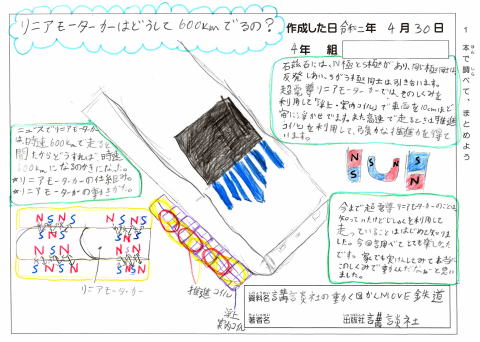 リニアモーターカーはどうして600kmでるの?
作成した日 令和二年 4月30日
4年 組
1 本で調べて、まとめよう
石には、N極とS極があり、同じ極同士は
反発しあい、ちがう極同士は引き合います。
超電導リニアモーターカーでは、そのしくみを
利用して「浮上・案内コイル」で車両を10cmほど
宙に浮かせてます。また高速で走るときは「推進
コイル」を利用して、強力な推進力を得て
います。
ニュースでリニアモーターカー
は時速600kmで走ると
聞いたからどうすれば時速
600kmになるのか気になった。
リニアモーターカーの仕組み。
リニアモーターカーの動き方。
N S
S N
N S N S
S N S N
N S N S
S N S N
N S N S
S N S N
N S N S
S N S N
リニアモーターカー
推進コイル
浮上
案内コイル
今まで超電導リニアモーターカーのことは
知ってたけどじしゃくを利用して
走っていることははじめて知りま
した。今回調べてとても楽しかった
です。家でも実けんしてみて本当に
このしくみで動くんだなぁーと思い
ました。
資料名 講談社の動く図かんMOVE 鉄道
著者名
出版社 講談社